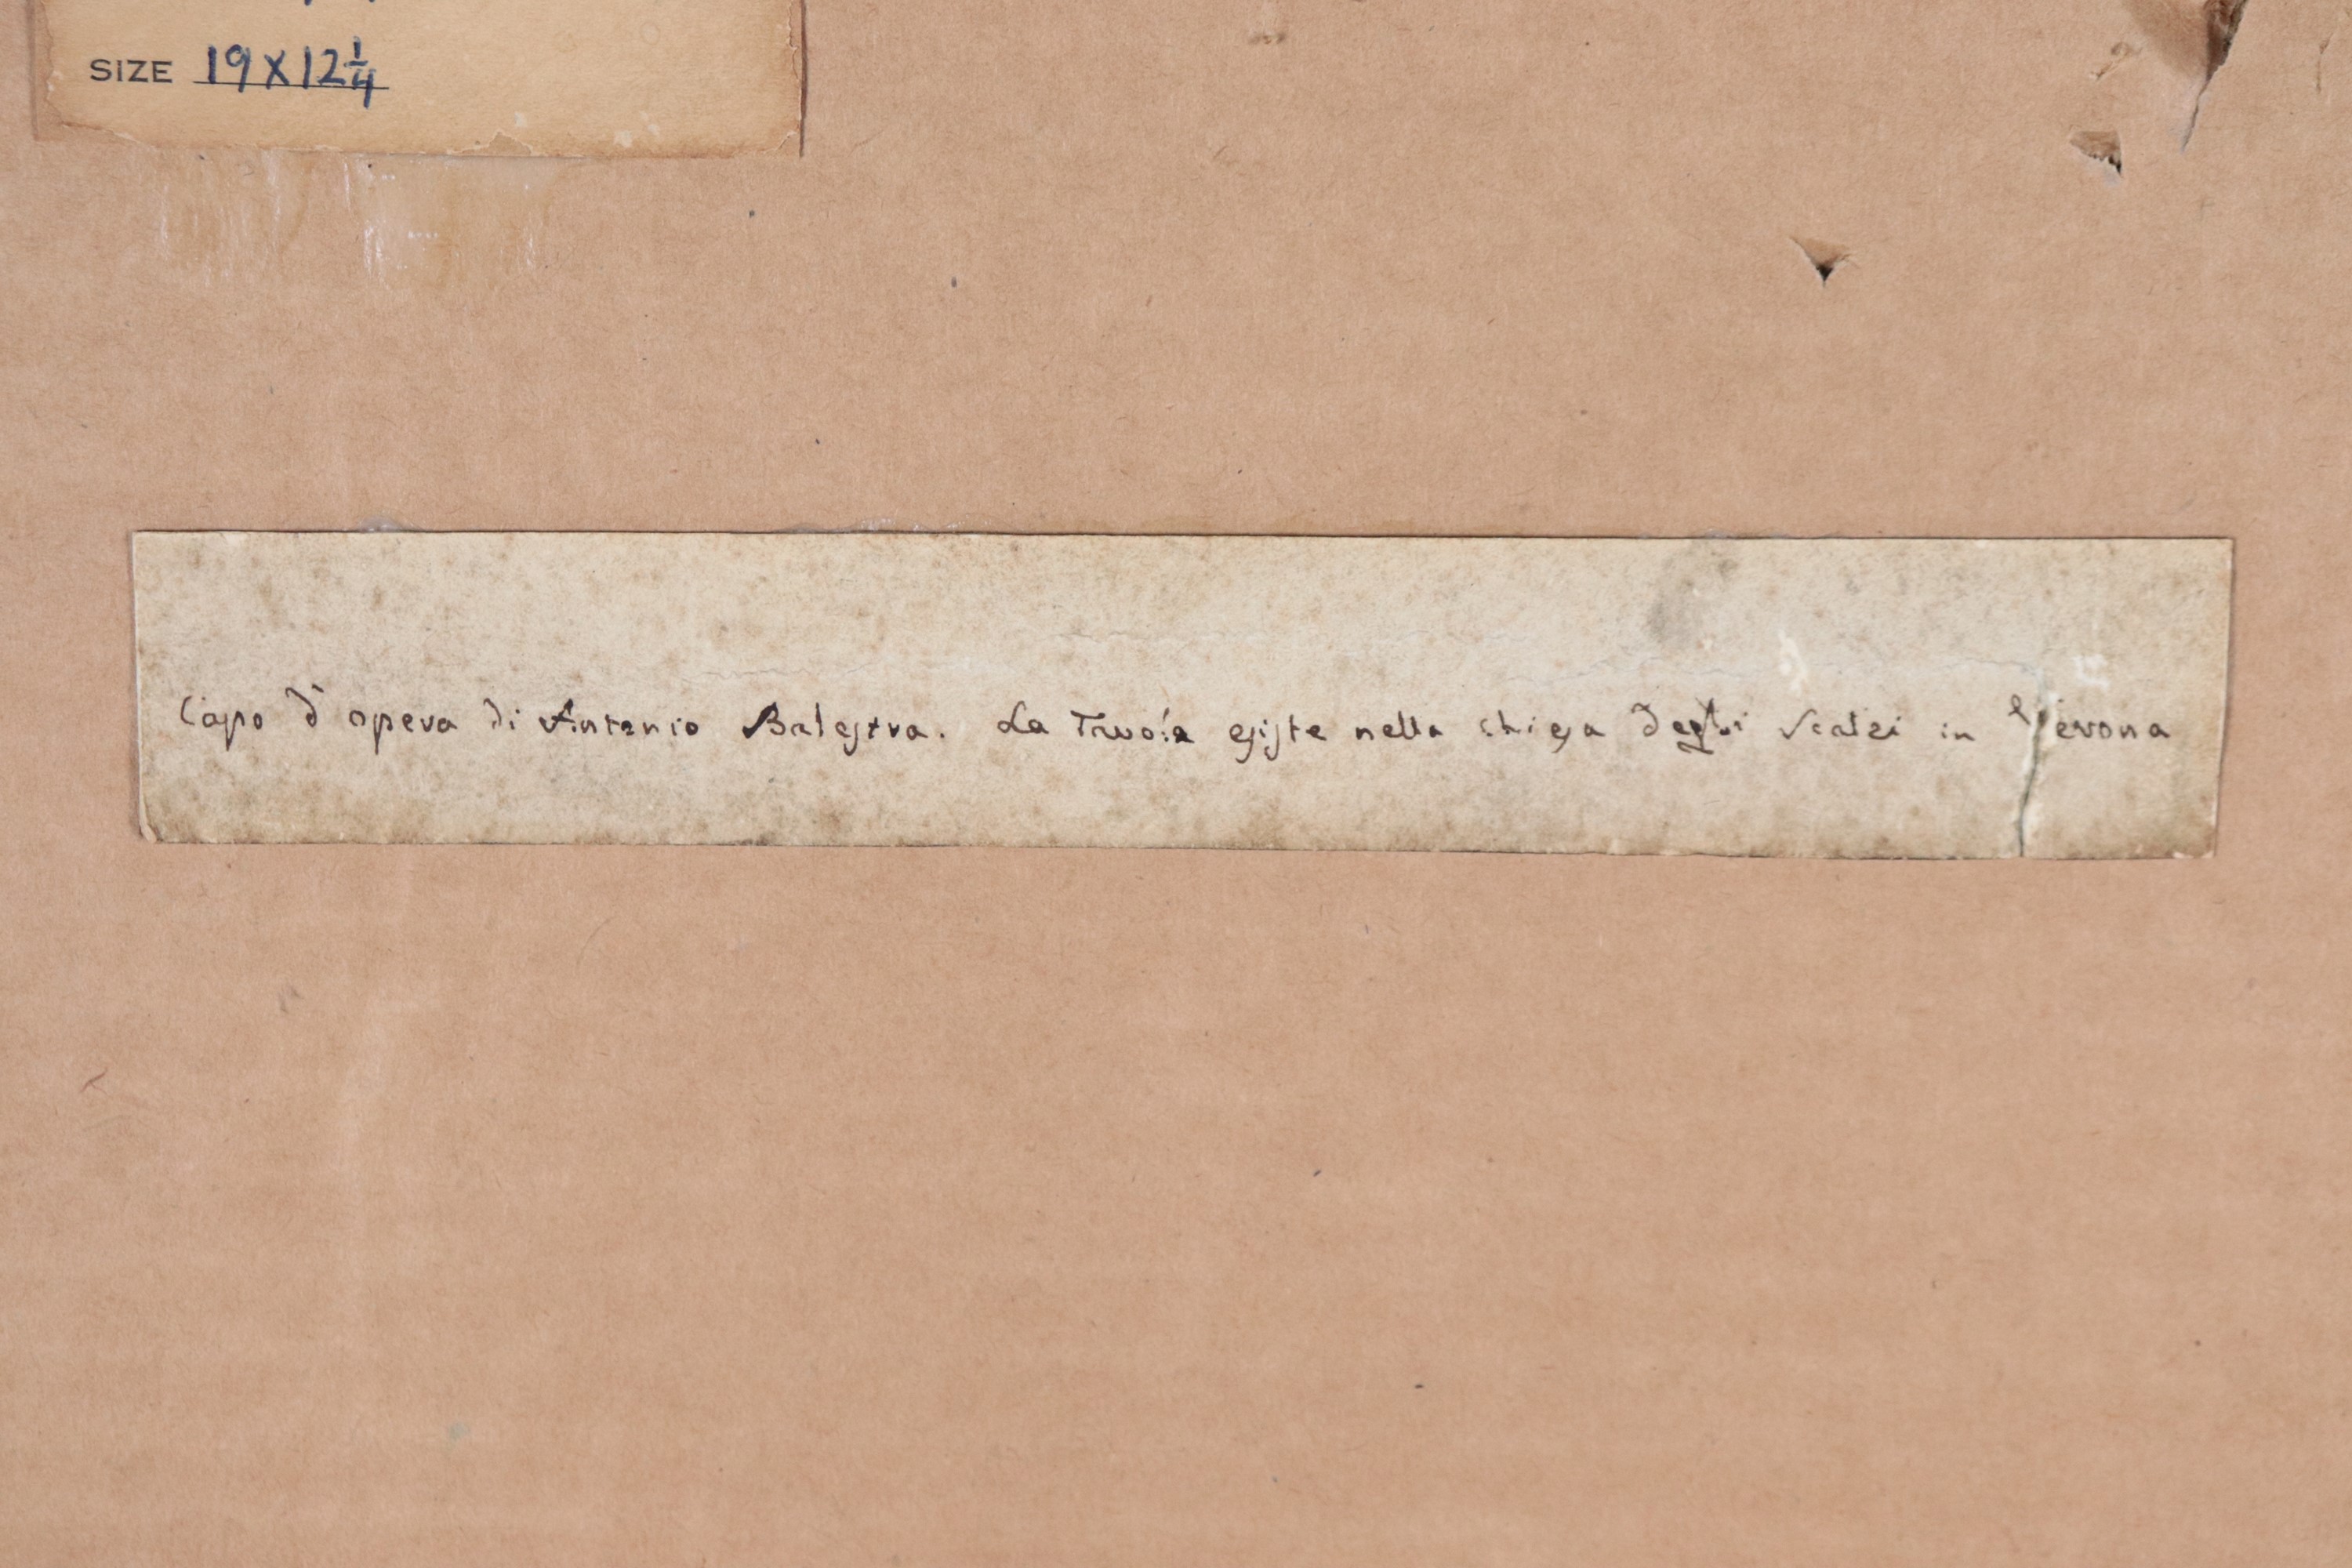 SIZE 19 X 12 1/4
Capo d' opera di Antonio Balestra. La Tavola esiste nella chiesa degli Scalzi in Verona